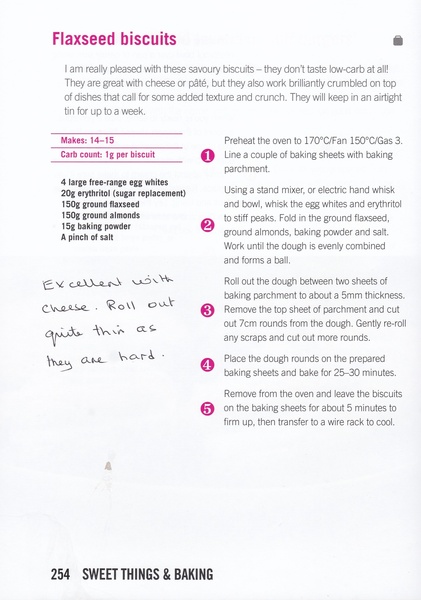 Flaxseed biscuits
I am really pleased with these savoury biscuits – they don't taste low-carb at all!
They are great with cheese or pâté, but they also work brilliantly crumbled on top
of dishes that call for some added texture and crunch. They will keep in an airtight
tin for up to a week.
Makes: 14–15
Carb count: 1g per biscuit
4 large free-range egg whites
20g erythritol (sugar replacement)
150g ground flaxseed
150g ground almonds
15g baking powder
A pinch of salt
Excellent with
cheese. Roll out
quite thin as
they are hard.
1
Preheat the oven to 170°C/Fan 150°C/Gas 3.
Line a couple of baking sheets with baking
parchment.
2
Using a stand mixer, or electric hand whisk
and bowl, whisk the egg whites and erythritol
to stiff peaks. Fold in the ground flaxseed,
ground almonds, baking powder and salt.
Work until the dough is evenly combined
and forms a ball.
3
Roll out the dough between two sheets of
baking parchment to about a 5mm thickness.
Remove the top sheet of parchment and cut
out 7cm rounds from the dough. Gently re-roll
any scraps and cut out more rounds.
4
Place the dough rounds on the prepared
baking sheets and bake for 25–30 minutes.
5
Remove from the oven and leave the biscuits
on the baking sheets for about 5 minutes to
firm up, then transfer to a wire rack to cool.
254 SWEET THINGS & BAKING